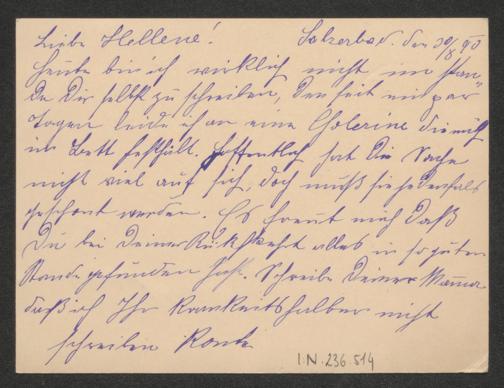 Liebe Hellene! Salzerbad. den 30/8 90
heute bin ich wirklich nicht im Stan-
de Dir selbst zu schreiben, den seit ein par
Tagen leide ich an eine Colerine die mich
im Bett festhält. Hoffentlich hat die Sache
nicht viel auf sich, doch muß sie jedenfals
geschont werden. Es freut mich daß
Du bei Deiner Rückkehr alles in so guten
Stande gefunden hast. Schreibe Deiner Mama
daß ich Ihr Krankeitshalber nicht
schreiben konte
I.N. 236.514